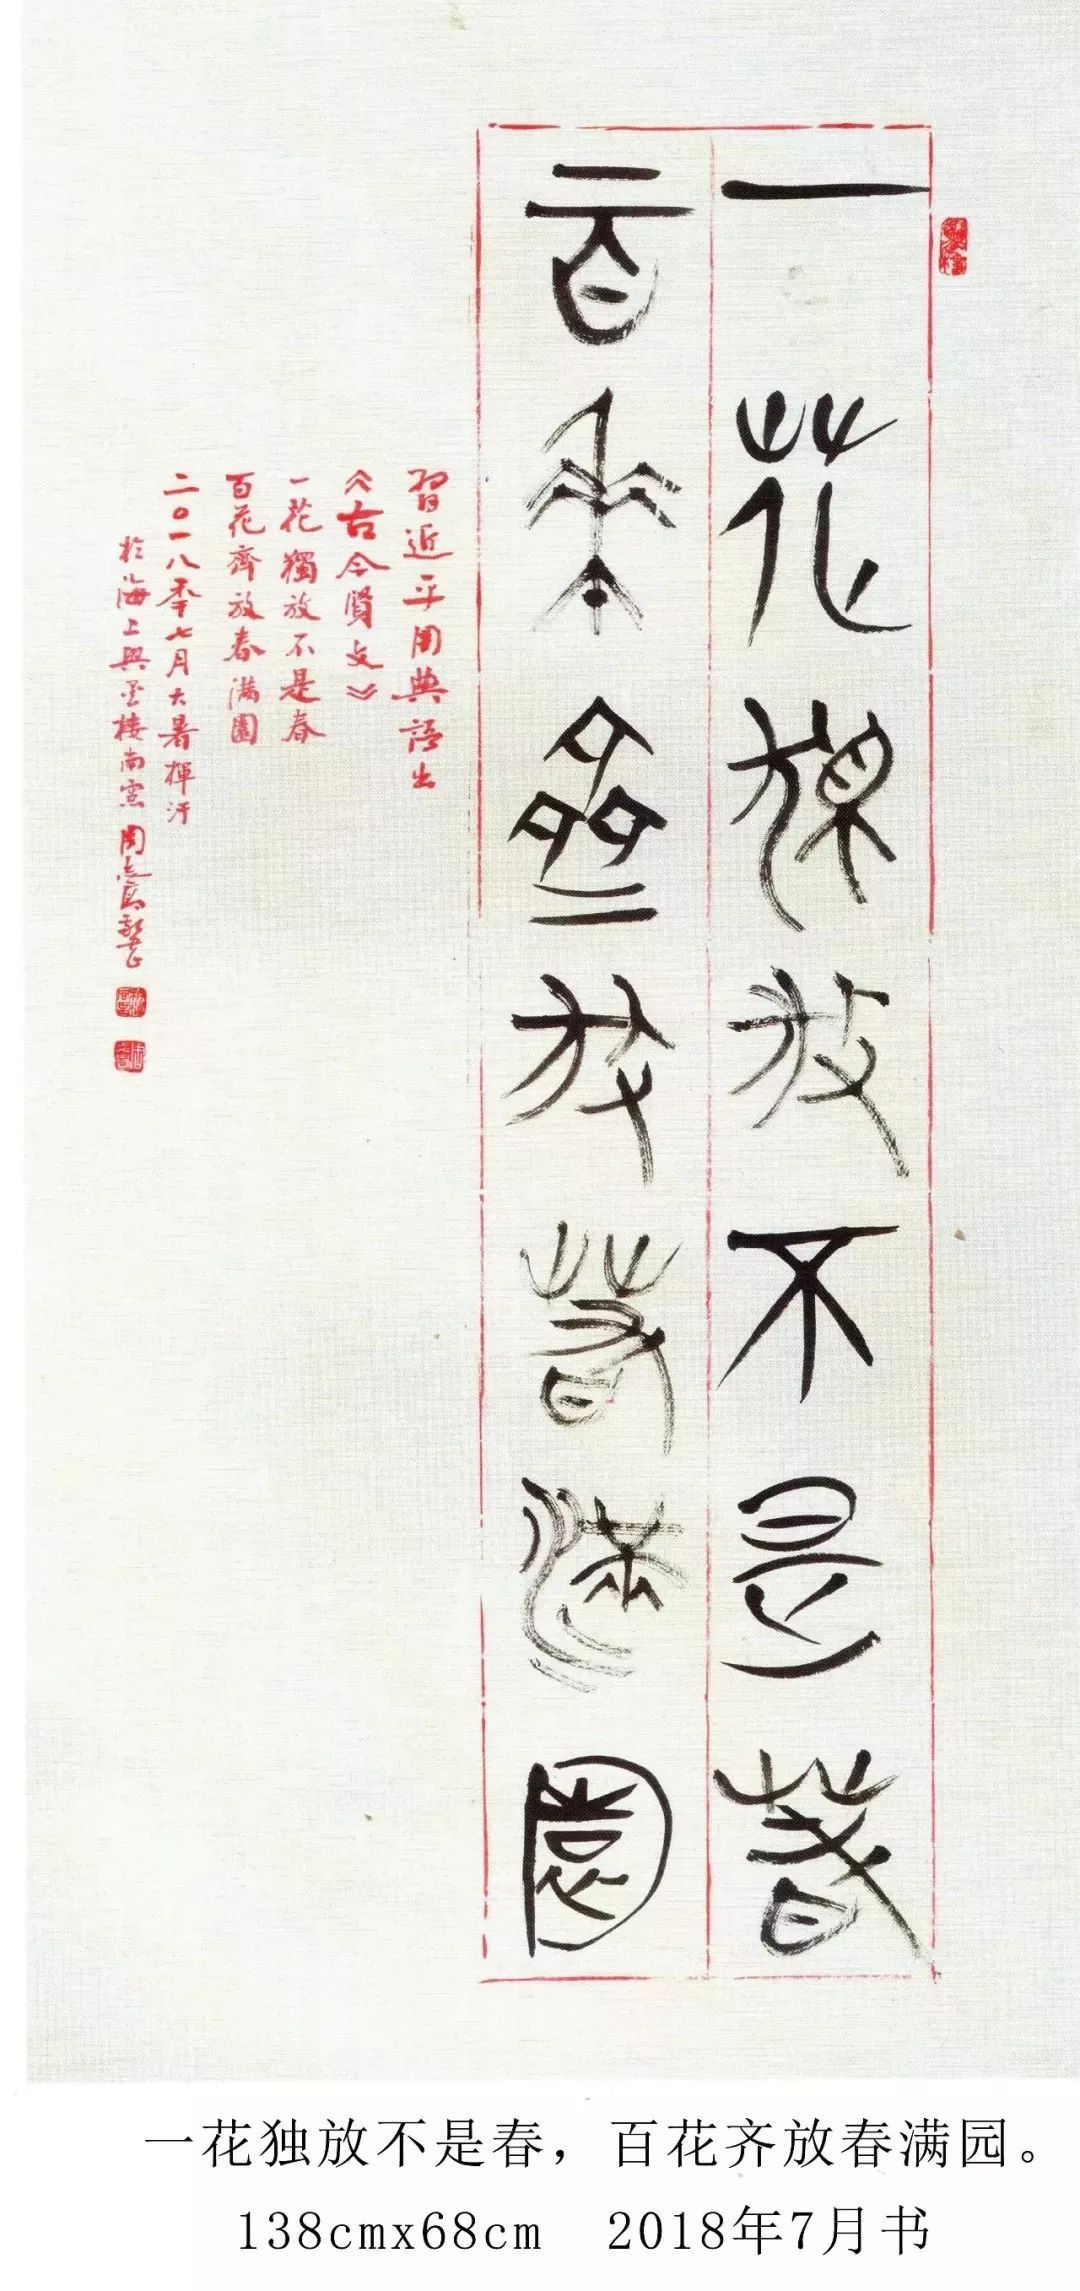 一花獨放不是春
百花齊放春滿園
習近平用典語出
《古今賢文》
一花獨放不是春
百花齊放春滿園
二〇一八年七月大暑揮汗
於海上興墨樓南窗周志高
一花独放不是春，百花齐放春满园。
138cmx68cm 2018年7月书